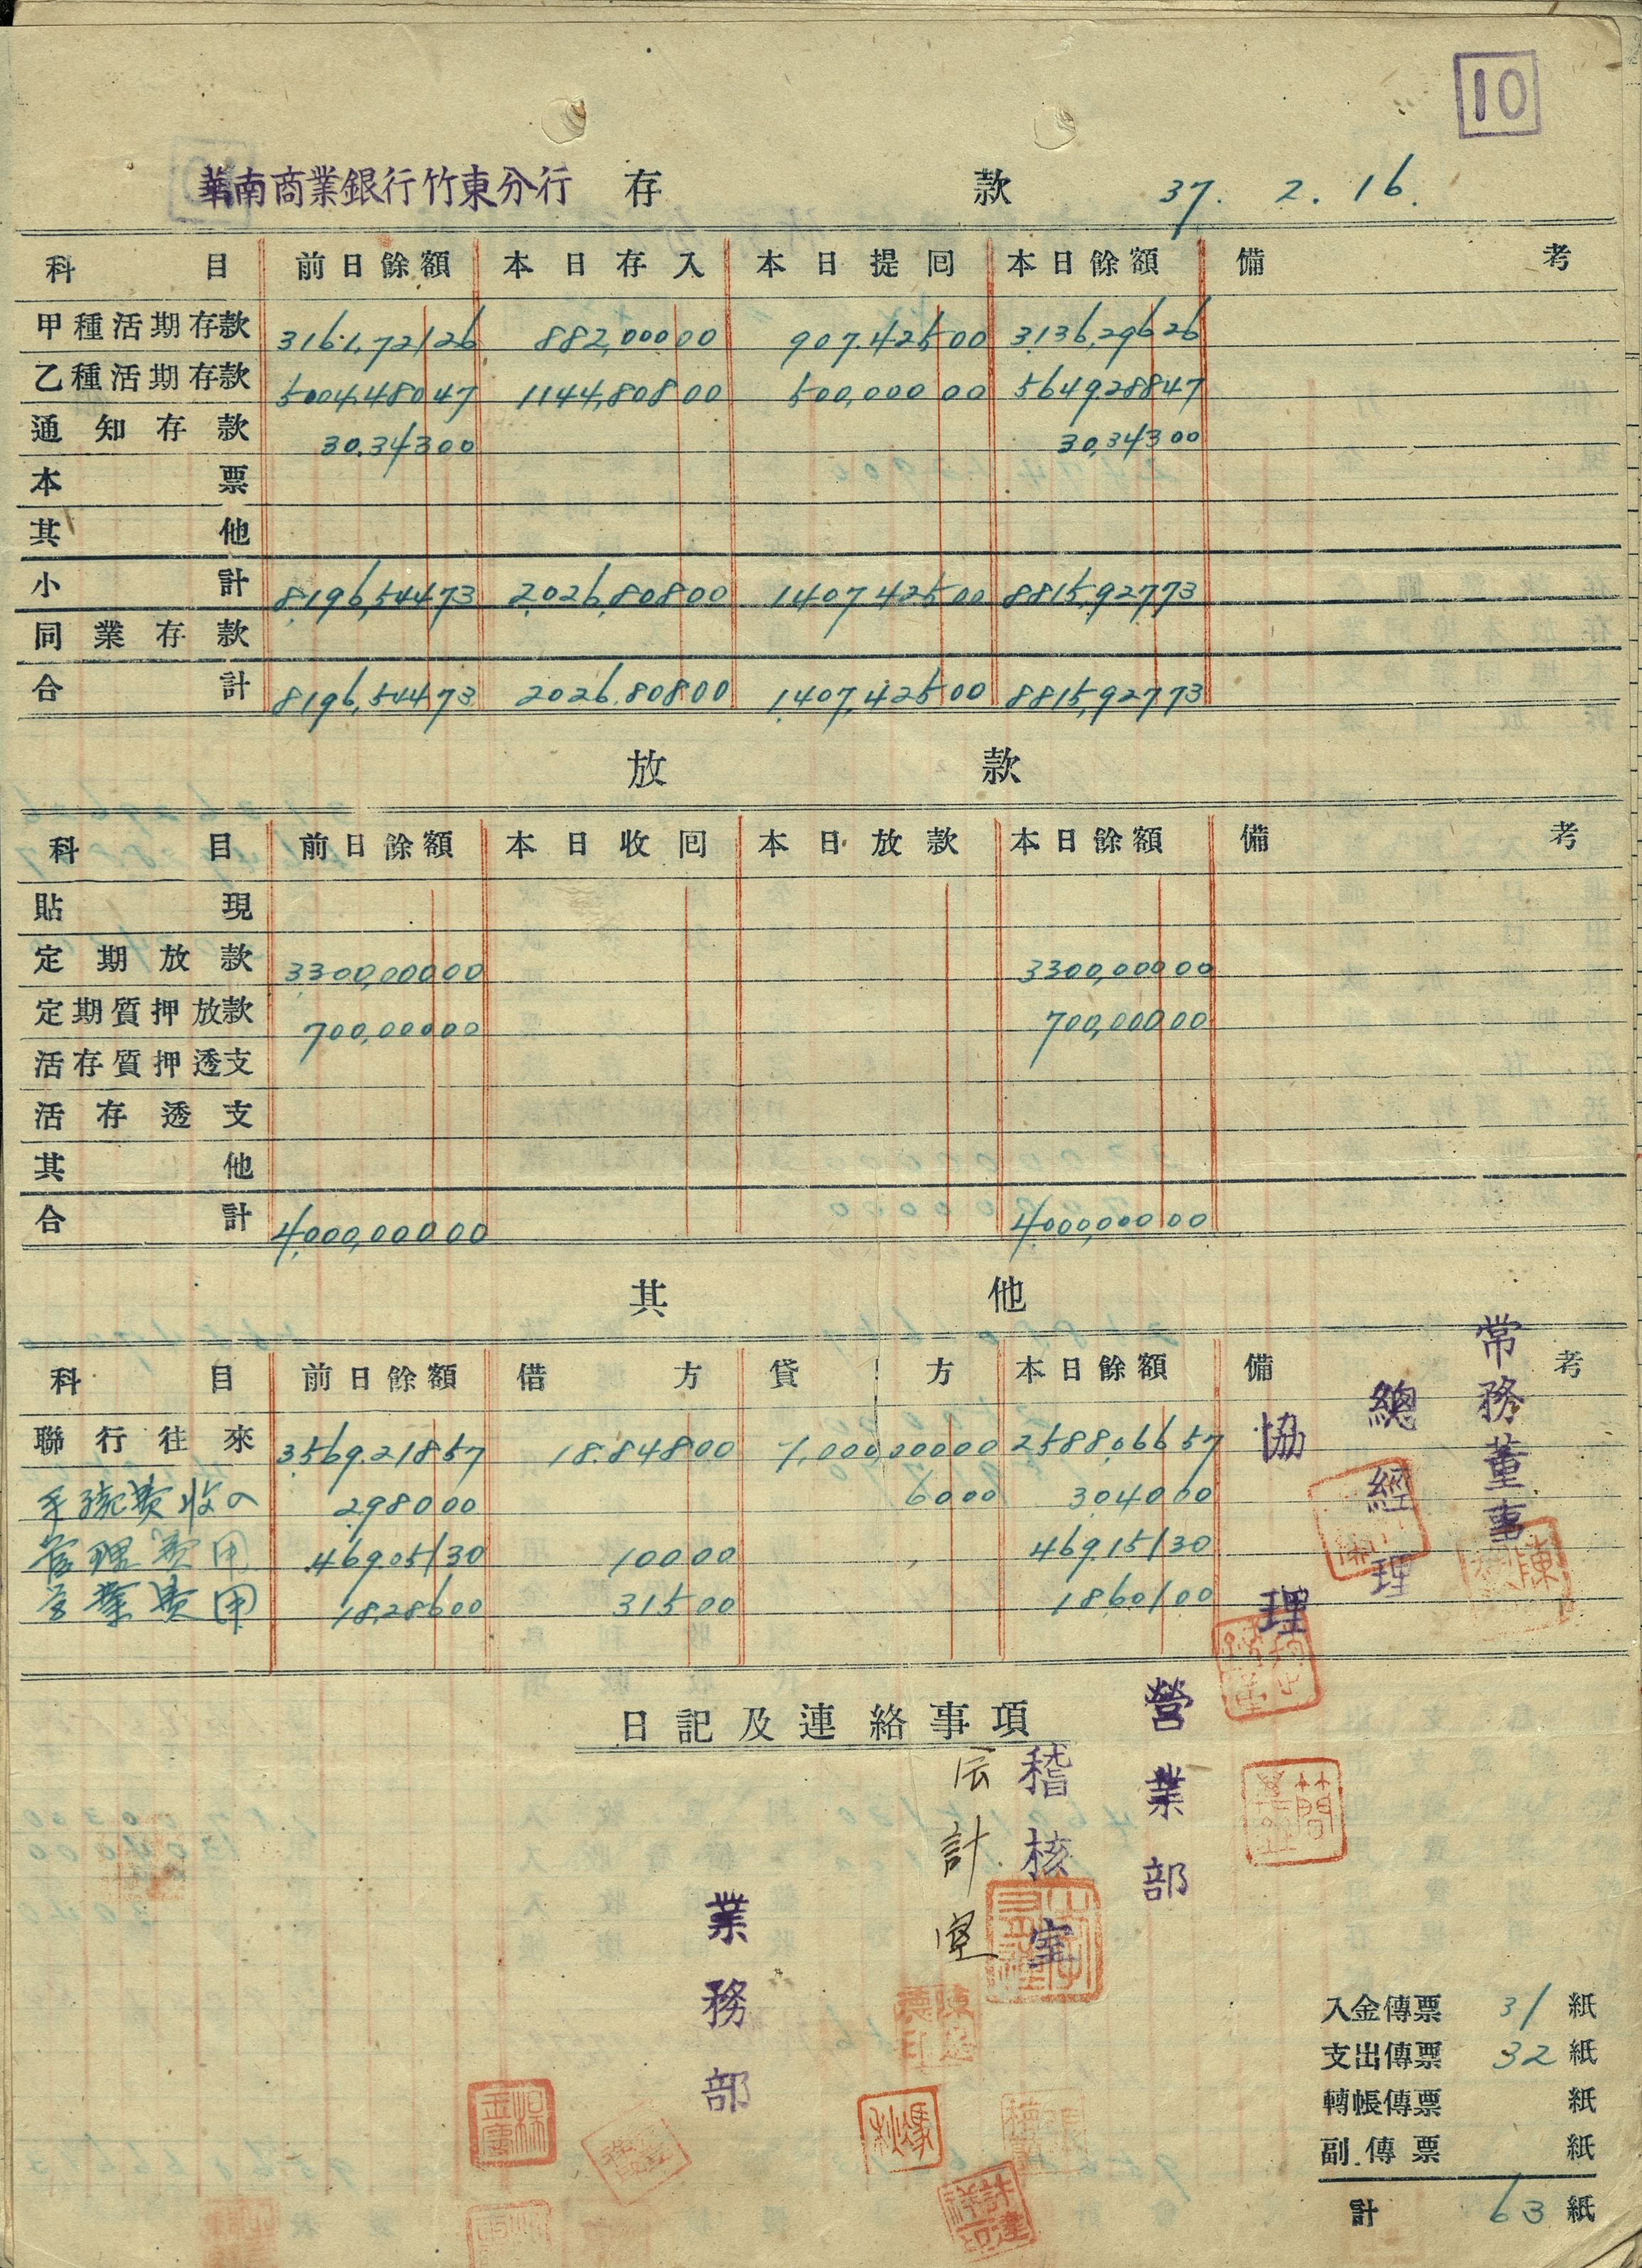 10
華南商業銀行竹東分行 存款 37. 2. 16.
科目 前日餘額 本日存入 本日提囘 本日餘額 備考
甲種活期存款 3,161,721 26 882,000 00 907,425 00 3,136,296 26
乙種活期存款 5,004,480 47 1,144,808 00 500,000 00 5,649,288 47
通知存款 30,343 00 30,343 00
本票
其他
小計 8,196,544 73 2,026,808 00 1,407,425 00 8,815,927 73
同業存款
合計 8,196,544 73 2,026,808 00 1,407,425 00 8,815,927 73
放款
科目 前日餘額 本日收囘 本日放款 本日餘額 備考
貼現
定期放款 3,300,000 00 3,300,000 00
定期質押放款 700,000 00 700,000 00
活存質押透支
活存透支
其他
合計 4,000,000 00 4,000,000 00
其他
科目 前日餘額 借方 貸方 本日餘額 備考
聯行往來 3,569,218 57 18,848 00 1,000,000 00 2,588,066 57
手續費收入 2,980 00 60 00 3,040 00
管理費用 46,905 130 100 00 46,915 130
營業費用 18,286 00 315 00 18,601 00
常務董事
總經理
協理
日記及連絡事項
營業部
稽核室
會計室
業務部
入金傳票 31 紙
支出傳票 32 紙
轉帳傳票 紙
副傳票 紙
計 63 紙